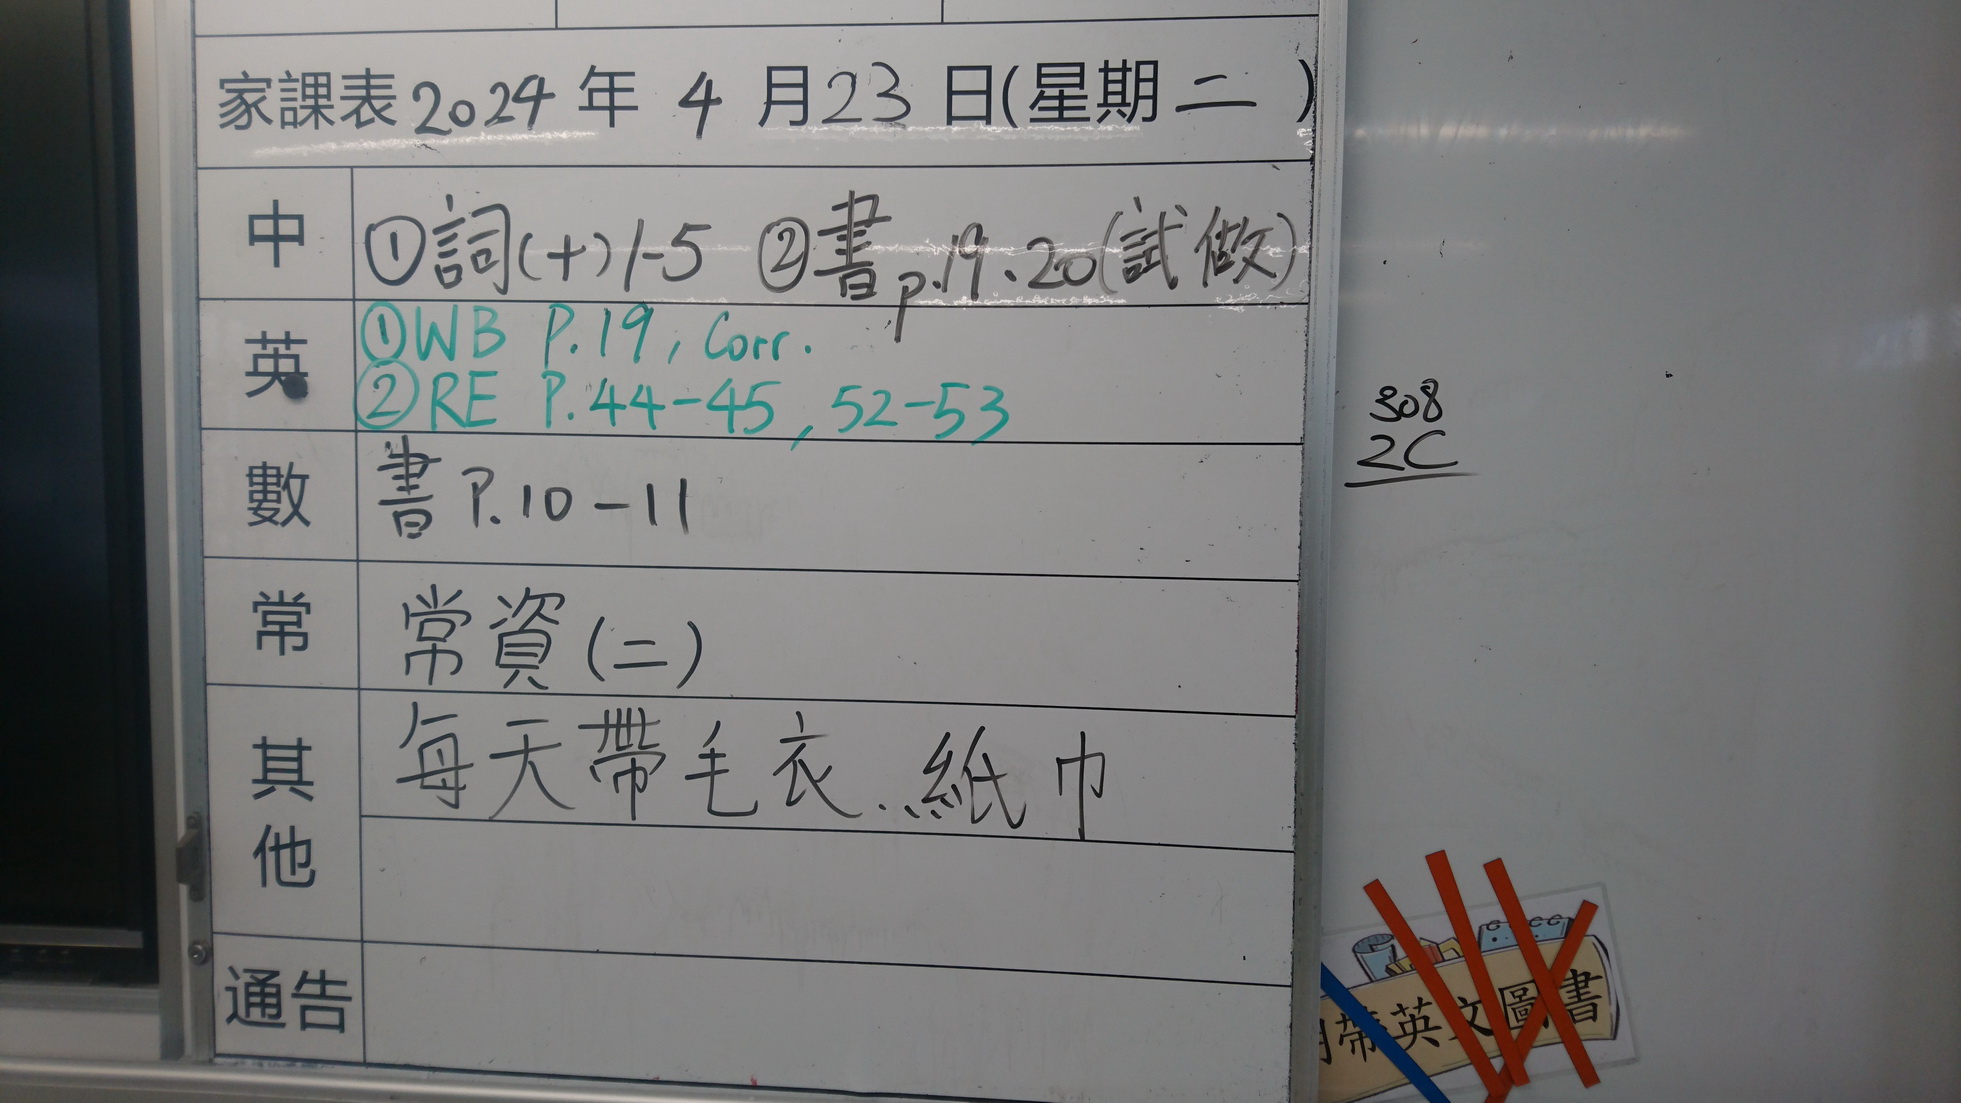 家課表2024年 4 月23日(星期二 )
中 ①詞(十)1-5 ②書p.19、20(試做)
英 ①WB P.19, Corr.
②RE P.44-45, 52-53
數 書 P.10-11
常 常資(二)
其他 每天帶毛衣、紙巾
通告
308
2C
帶英文圖書